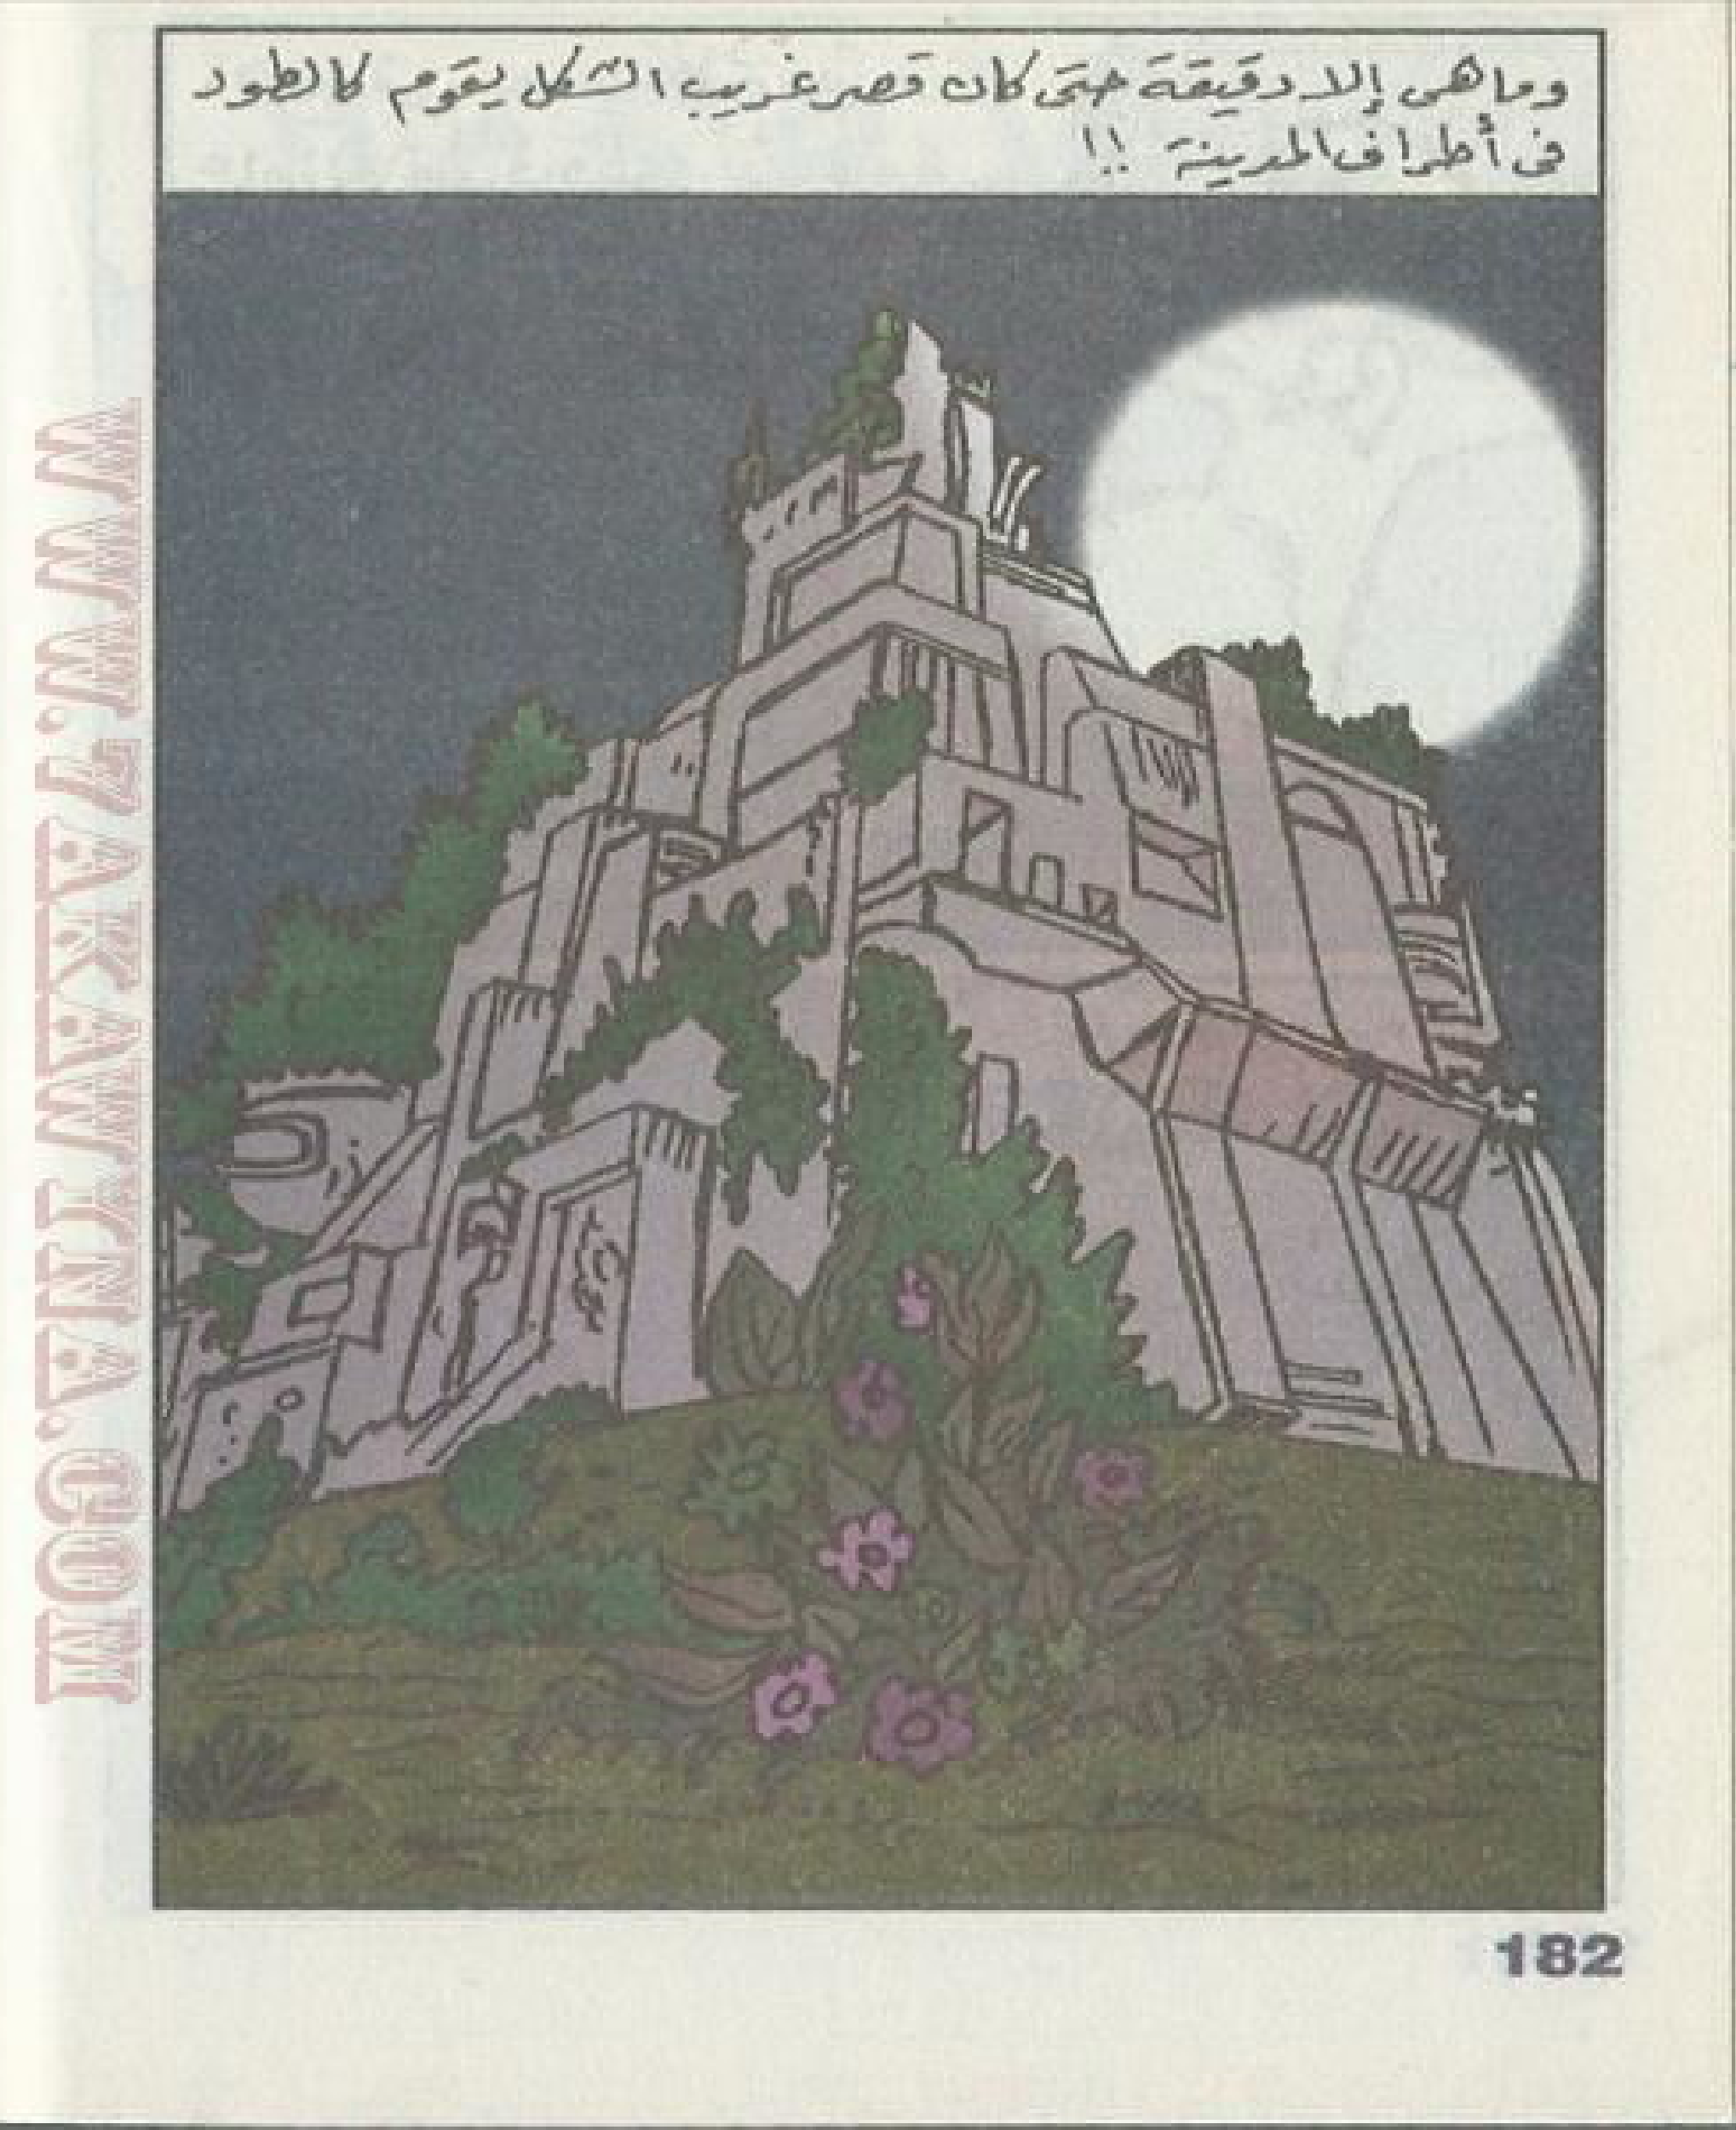 وما هى إلا دقيقة حتى كان قصر غريب الشكل يقوم كالطود
فى أطراف المدينة !!
WWW.7AKAWTNA.COM
182